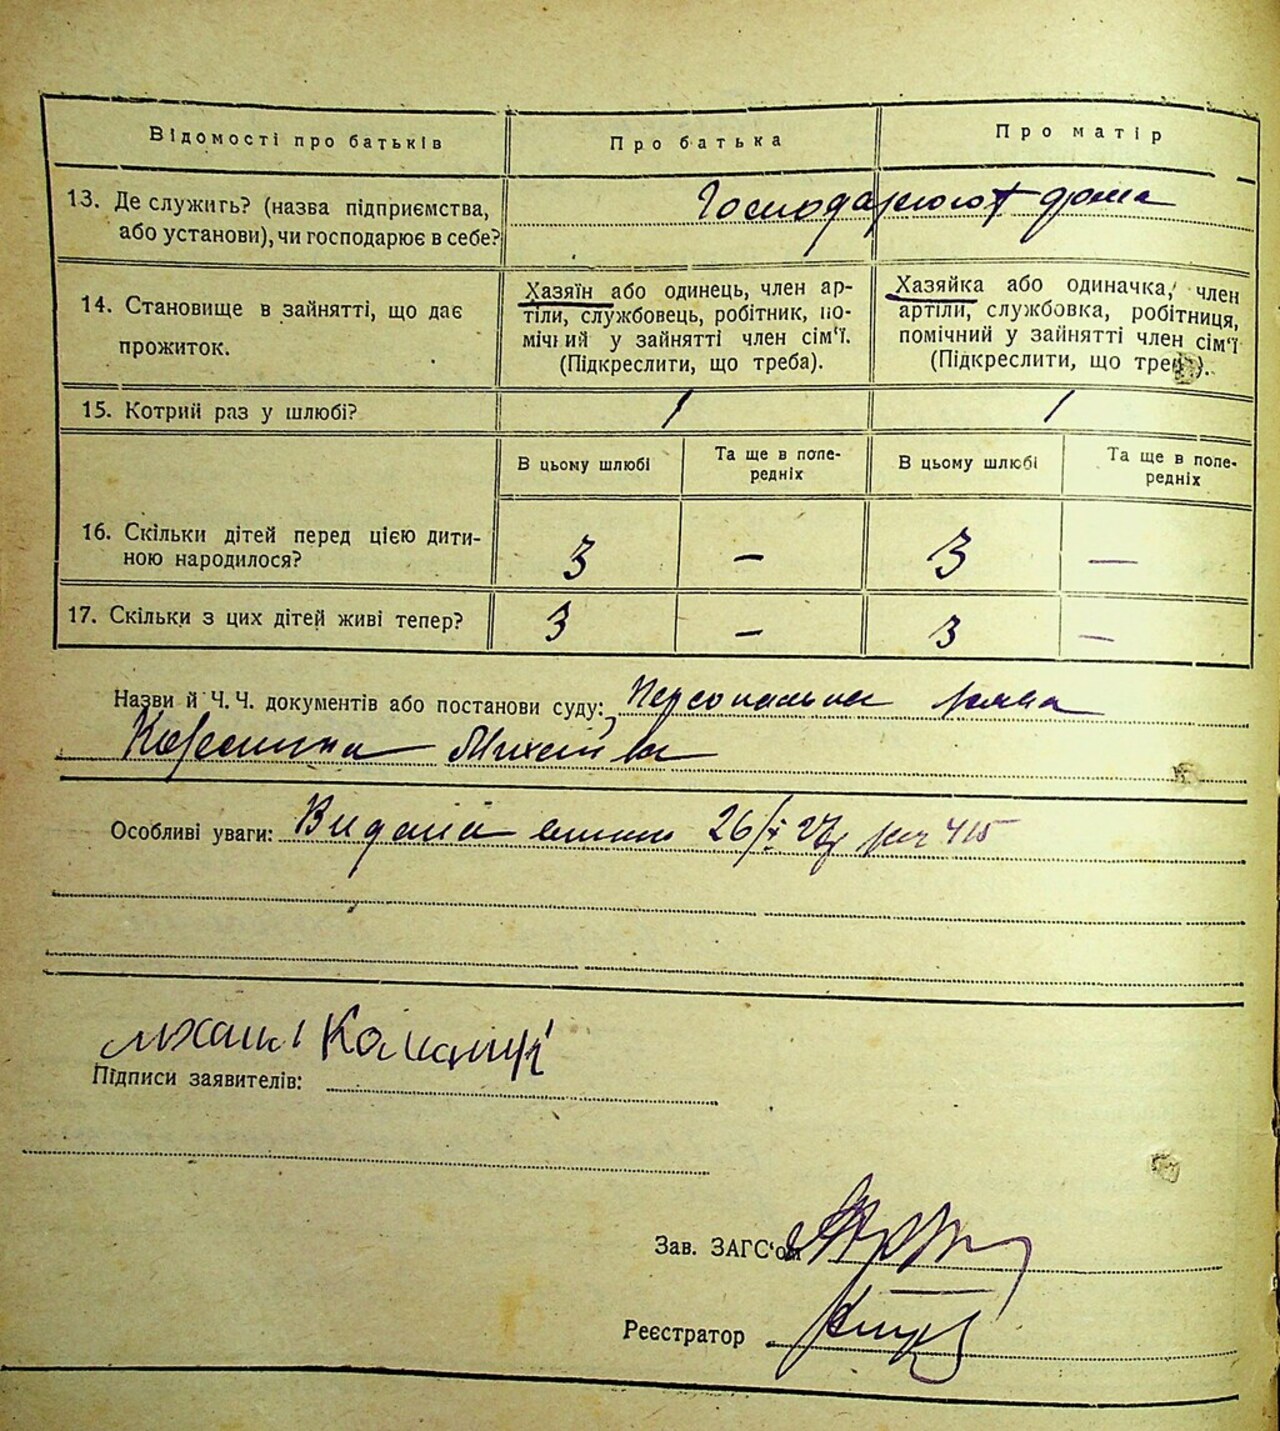 Відомості про батьків
Про батька
Про матір
13. Де служить? (назва підприємства,
або установи), чи господарює в себе?
Господарюют дома
14. Становище в зайнятті, що дає
прожиток.
Хазяїн або одинець, член ар-
тіли, службовець, робітник, по-
мічний у зайнятті член сім'ї.
(Підкреслити, що треба).
Хазяйка або одиначка, член
артіли, службовка, робітниця,
помічний у зайнятті член сім'ї
(Підкреслити, що треба).
15. Котрий раз у шлюбі?
1
1
В цьому шлюбі
Та ще в попе-
редніх
В цьому шлюбі
Та ще в попе-
редніх
16. Скільки дітей перед цією дити-
ною народилося?
3
—
3
—
17. Скільки з цих дітей живі тепер?
3
—
3
—
Назви й Ч.Ч. документів або постанови суду: Персональна
Особливі уваги: 26/X 27 415
Підписи заявителів:
Зав. ЗАГС'ом
Реєстратор